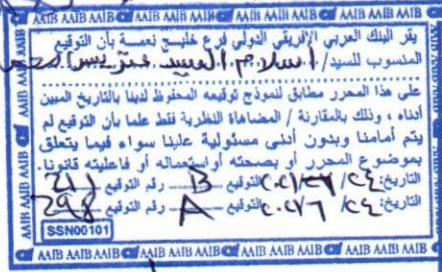 AAIB AAIB AAIB AAIB AAIB AAIB AAIB AAIB
يقر البنك العربي الإفريقي الدولي فرع خليج نعمة بأن التوقيع
المنسوب للسيد/ اسلام السيد
على هذا المحرر مطابق لنموذج توقيعه المحفوظ لدينا بالتاريخ المبين
أدناه ، وذلك بالمقارنة / المضاهاة النظرية فقط علما بأن التوقيع لم
يتم أمامنا وبدون أدنى مسئولية علينا سواء فيما يتعلق
بموضوع المحرر أو بصحته أو إستعماله أو فاعليته قانونا.
التاريخ: التوقيع B رقم التوقيع
التاريخ: التوقيع A رقم التوقيع
SSN00101
AAIB AAIB AAIB AAIB AAIB AAIB AAIB